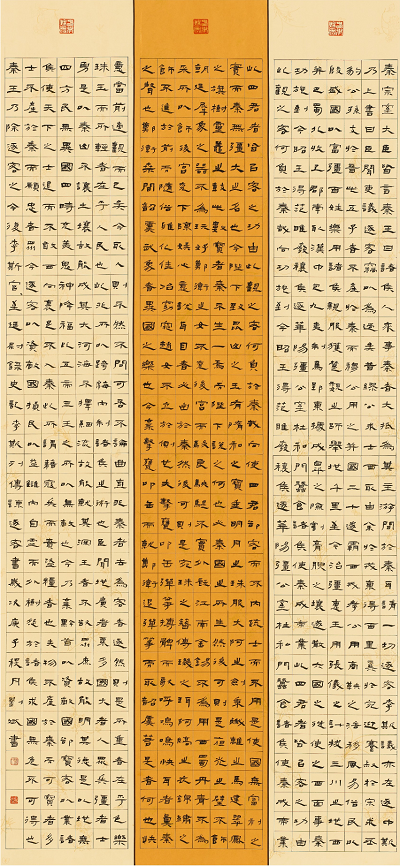 秦宗室大臣皆言秦王曰諸侯人來事秦者大抵為其主游間於秦耳請一切逐客李斯議亦在逐
乃上書曰臣聞吏議逐客竊以為過矣昔繆公求士西取由余於戎東得百里奚於宛迎蹇叔於宋來丕
豹公孫支於晉此五子者不產於秦而繆公用之并國二十遂霸西戎孝公用商鞅之法移風易俗民以
殷盛國以富彊百姓樂用諸侯親服獲楚魏之師舉地千里至今治彊惠王用張儀之計拔三川之地西
并巴蜀北收上郡南取漢中包九夷制鄢郢東據成皋之險割膏腴之壤遂散六國之從使之西面事秦功
施到今昭王得范雎廢穰侯逐華陽彊公室杜私門蠶食諸侯使秦成帝業
此四君者皆以客之功由此觀之客何負於秦哉向使四君卻客而不內疏士而不用是使國無富利之
實而秦無彊大之名也今陛下致昆山之玉有隨和之寶垂明月之珠服太阿之劍乘纖離之馬建翠鳳之
旗樹靈鼉之鼓此數寶者秦不生一焉而陛下說之何也必秦國之所生然後可則是夜光之璧不飾
朝廷犀象之器不為玩好鄭衛之女不充後宮而駿良駃騠不實外廄江南金錫不為用西蜀丹青不為
采所以飾後宮充下陳娛心意說耳目者必出於秦然後可則是宛珠之簪傅璣之珥阿縞之衣錦繡之
飾不進於前而隨俗雅化佳冶窈窕趙女不立於側也夫擊甕叩缶彈箏搏髀而歌呼嗚嗚快耳者真秦
之聲也鄭衛桑間韶虞武象者異國之樂也今棄擊甕叩缶而就鄭衛退彈箏而取韶虞若是者何也快
意當前適觀而已矣今取人則不然不問可否不論曲直非秦者去為客者逐然則是所重者在乎色樂
珠玉而所輕者在乎人民也此非所以跨海內制諸侯之術也臣聞地廣者粟多國大者人眾兵彊者士
勇是以太山不讓土壤故能成其大河海不擇細流故能就其深王者不卻眾庶故能明其德是以地無
四方民無異國四時充美鬼神降福此五帝三王之所以無敵也今乃棄黔首以資敵國卻賓客以業諸
侯使天下之士退而不敢西向裹足不入秦此所謂藉寇兵而齎盜糧者也夫物不產於秦可寶者多
士不產於秦而願忠者眾今逐客以資敵國損民以益讎內自虛而外樹怨於諸侯求國無危不可得也
秦王乃除逐客之令復李斯官 錄史記李斯列傳諫逐客書歲次庚子 月 書